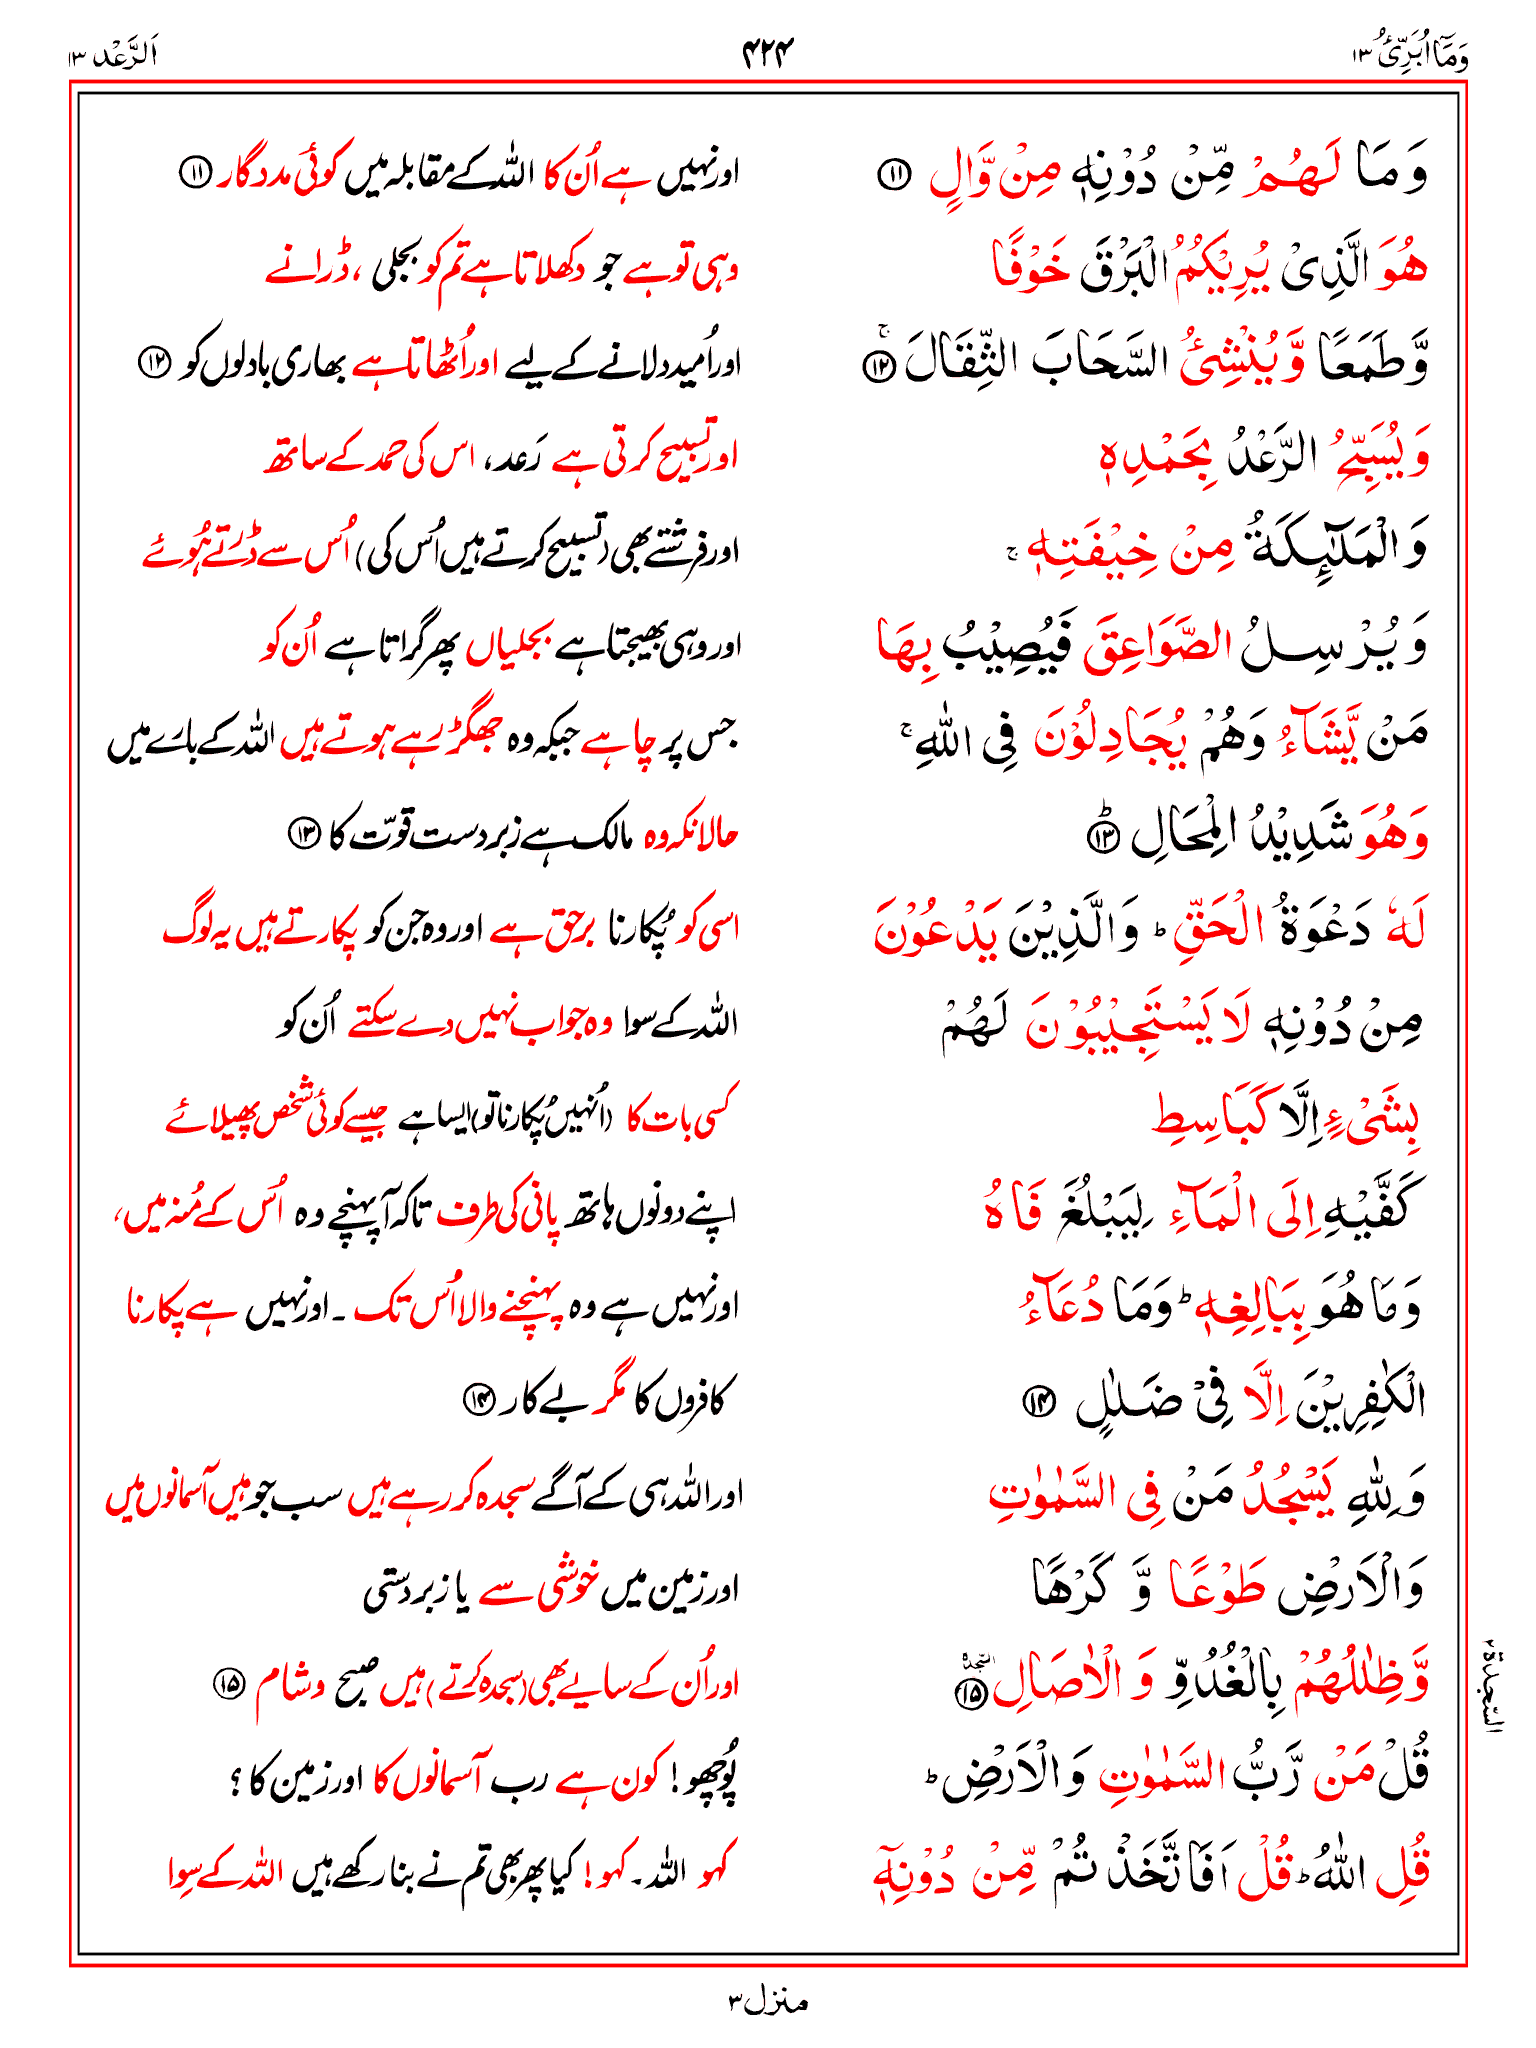 وَمَآ اُبَرِّئُ ۱۳
۴۲۴
اَلرَّعْد ۱۳
وَمَا لَهُمْ مِّنْ دُوْنِهٖ مِنْ وَّالٍ ۱۱
اور نہیں ہے اُن کا اللہ کے مقابلہ میں کوئی مددگار ۱۱
هُوَ الَّذِیْ یُرِیْكُمُ الْبَرْقَ خَوْفًا
وہی تو ہے جو دکھلاتا ہے تم کو بجلی، ڈرانے
وَّطَمَعًا وَّیُنْشِئُ السَّحَابَ الثِّقَالَ ۚ ۱۲
اور اُمید دلانے کے لیے اور اُٹھاتا ہے بھاری بادلوں کو ۱۲
وَیُسَبِّحُ الرَّعْدُ بِحَمْدِهٖ
اور تسبیح کرتی ہے رَعد، اس کی حمد کے ساتھ
وَالْمَلٰٓىِٕكَةُ مِنْ خِیْفَتِهٖ ۚ
اور فرشتے بھی (تسبیح کرتے ہیں اُس کی) اُس سے ڈرتے ہُوئے
وَیُرْسِلُ الصَّوَاعِقَ فَیُصِیْبُ بِهَا
اور وہی بھیجتا ہے بجلیاں پھر گراتا ہے اُن کو
مَنْ یَّشَآءُ وَهُمْ یُجَادِلُوْنَ فِی اللّٰهِ ۚ
جس پر چاہے جبکہ وہ جھگڑ رہے ہوتے ہیں اللہ کے بارے میں
وَهُوَ شَدِیْدُ الْمِحَالِ ؕ ۱۳
حالانکہ وہ مالک ہے زبردست قوّت کا ۱۳
لَهٗ دَعْوَةُ الْحَقِّ ؕ وَالَّذِیْنَ یَدْعُوْنَ
اسی کو پُکارنا برحق ہے اور وہ جن کو پکارتے ہیں یہ لوگ
مِنْ دُوْنِهٖ لَا یَسْتَجِیْبُوْنَ لَهُمْ
اللہ کے سوا وہ جواب نہیں دے سکتے اُن کو
بِشَیْءٍ اِلَّا كَبَاسِطِ
کسی بات کا (اُنہیں پُکارنا تو) ایسا ہے جیسے کوئی شخص پھیلائے
كَفَّیْهِ اِلَی الْمَآءِ لِیَبْلُغَ فَاهُ
اپنے دونوں ہاتھ پانی کی طرف تاکہ آ پہنچے وہ اُس کے مُنہ میں،
وَمَا هُوَ بِبَالِغِهٖ ؕ وَمَا دُعَآءُ
اور نہیں ہے وہ پہنچنے والا اُس تک۔ اور نہیں ہے پکارنا
الْكٰفِرِیْنَ اِلَّا فِیْ ضَلٰلٍ ۱۴
کافروں کا مگر بے کار ۱۴
وَلِلّٰهِ یَسْجُدُ مَنْ فِی السَّمٰوٰتِ
اور اللہ ہی کے آگے سجدہ کر رہے ہیں سب جو ہیں آسمانوں میں
وَالْاَرْضِ طَوْعًا وَّ كَرْهًا
اور زمین میں خوشی سے یا زبردستی
وَّظِلٰلُهُمْ بِالْغُدُوِّ وَ الْاٰصَالِ السجدة ۱۵
اور اُن کے سایے بھی (سجدہ کرتے) ہیں صبح و شام ۱۵
السّجدة ۲
قُلْ مَنْ رَّبُّ السَّمٰوٰتِ وَ الْاَرْضِ ؕ
پُوچھو! کون ہے رب آسمانوں کا اور زمین کا؟
قُلِ اللّٰهُ ؕ قُلْ اَفَاتَّخَذْتُمْ مِّنْ دُوْنِهٖۤ
کہو اللہ۔ کہو! کیا پھر بھی تم نے بنا رکھے ہیں اللہ کے سِوا
منزل ۳